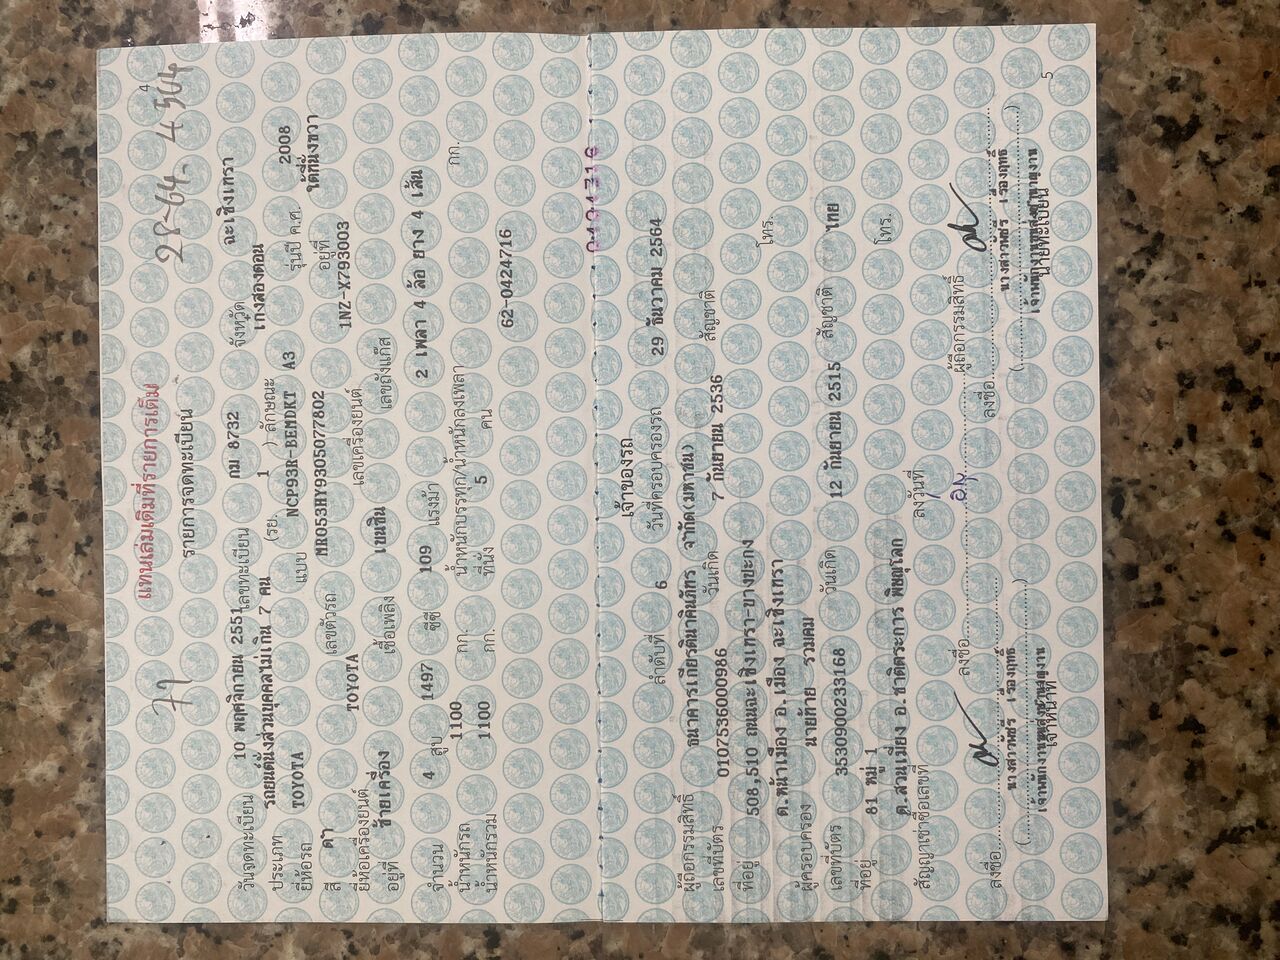 77
28-64- 4 504
4
แทนเล่มเดิมที่รายการเต็ม
รายการจดทะเบียน
วันจดทะเบียน 10 พฤศจิกายน 2551 เลขทะเบียน กม 8732 จังหวัด ฉะเชิงเทรา
ประเภท รถยนต์นั่งส่วนบุคคลไม่เกิน 7 คน (รย. 1 ) ลักษณะ เก๋งสองตอน
ยี่ห้อรถ TOYOTA แบบ NCP93R-BEMDKT A3 รุ่นปี ค.ศ. 2008
สี ดำ เลขตัวรถ MR053HY9305077802 อยู่ที่ ใต้ที่นั่งขวา
ยี่ห้อเครื่องยนต์ TOYOTA เลขเครื่องยนต์ 1NZ-X793003
อยู่ที่ ซ้ายเครื่อง เชื้อเพลิง เบนซิน เลขถังแก๊ส
จำนวน 4 สูบ 1497 ซีซี 109 แรงม้า 2 เพลา 4 ล้อ ยาง 4 เส้น
น้ำหนักรถ 1100 กก. น้ำหนักบรรทุก/น้ำหนักลงเพลา กก.
น้ำหนักรวม 1100 กก. ที่นั่ง 5 คน
62-0424716
เจ้าของรถ
ลำดับที่ 6 วันที่ครอบครองรถ 29 ธันวาคม 2564
ผู้ถือกรรมสิทธิ์ ธนาคารเกียรตินาคินภัทร จำกัด(มหาชน)
เลขที่บัตร 0107536000986 วันเกิด 7 กันยายน 2536 สัญชาติ
ที่อยู่ 508,510 ถนนฉะเชิงเทรา-บางปะกง
ต.หน้าเมือง อ.เมือง ฉะเชิงเทรา โทร.
ผู้ครอบครอง นายท้าย รวมคม
เลขที่บัตร 3530900233168 วันเกิด 12 กันยายน 2515 สัญชาติ ไทย
ที่อยู่ 81 หมู่ 1
ต.สวนเมี่ยง อ.ชาติตระการ พิษณุโลก โทร.
สัญญาเช่าซื้อเลขที่ ลงวันที่
ลงชื่อ ผู้ถือกรรมสิทธิ์
ลงชื่อ ลงชื่อ
เจ้าหน้าที่ นายทะเบียน
5